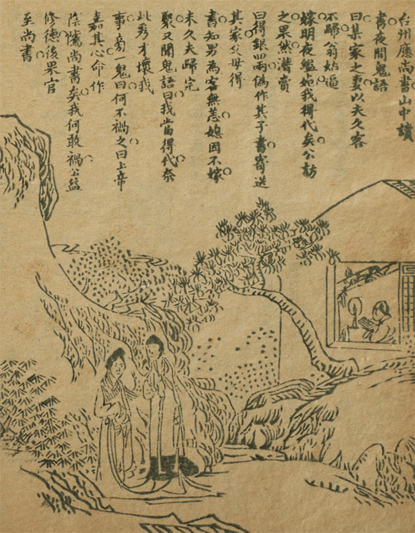 台州應尚書山中讀
書夜間鬼語
曰某家士妻以夫久客
不歸翁姑逼
嫁明夜縊此我得代矣公訪
之果然潛賣
田得銀四兩偽作其子書寄送
其家父母得
書知男為客無恙媳因不嫁
未久夫歸完
聚又聞鬼語曰我當得代奈
此秀才壞我
事旁一鬼曰何不禍之曰上帝
嘉其心命作
陰隲尚書矣我何敢禍公益
修德後果官
至尚書